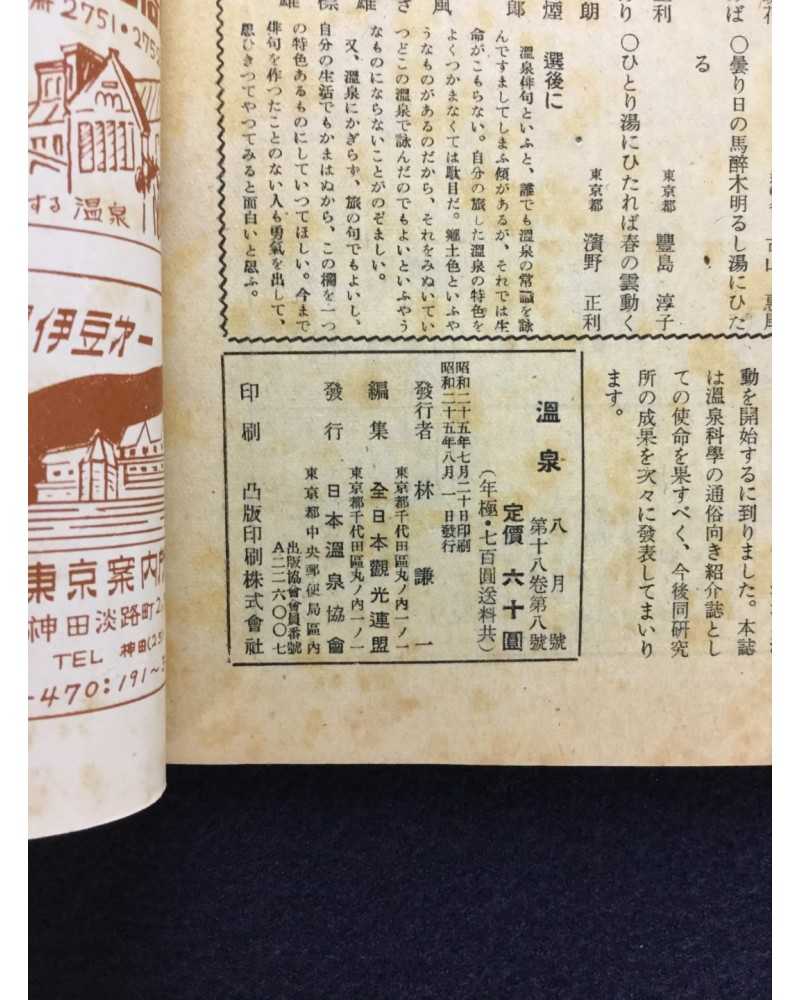 ば 〇曇り日の馬醉木明るし湯にひた
る
東京都 豐島 淳子
り 〇ひとり湯にひたれば春の雲動く
東京都 濱野 正利
選後に
溫泉俳句といふと、誰でも溫泉の常識を詠
んですましてしまふ傾があるが、それでは生
命がこもらない。自分の旅した溫泉の特色を
よくつかまなくては駄目だ。鄕土色といふや
うなものがあるのだから、それをみぬいてい
つどこの溫泉で詠んだのでもよいといふやう
なものにならないことがのぞましい。
又、溫泉にかぎらず、旅の句でもよいし、
自分の生活でもかまはぬから、この欄を一つ
の特色あるものにしていつてほしい。今まで
俳句を作つたことのない人も勇氣を出して、
思ひきつてやつてみると面白いと思ふ。
動を開始するに到りました。本誌
は溫泉科學の通俗向き紹介誌とし
ての使命を果すべく、今後同研究
所の成果を次々に發表してまいり
ます。
溫泉 八月號
第十八卷第八號
定價 六十圓
(年極・七百圓送料共)
昭和二十五年七月二十日印刷
昭和二十五年八月 一日發行
發行者 林 謙一
東京都千代田區丸ノ内一ノ一
編集 全日本觀光連盟
東京都千代田區丸ノ内一ノ一
發行 日本溫泉協會
東京都中央郵便局區內
出版協會會員番號
A二二六〇〇七
印刷 凸版印刷株式會社
2751・2752
する 温泉
伊豆才一
東京案内所
神田淡路町2
TEL 神田(25)
-470:191~